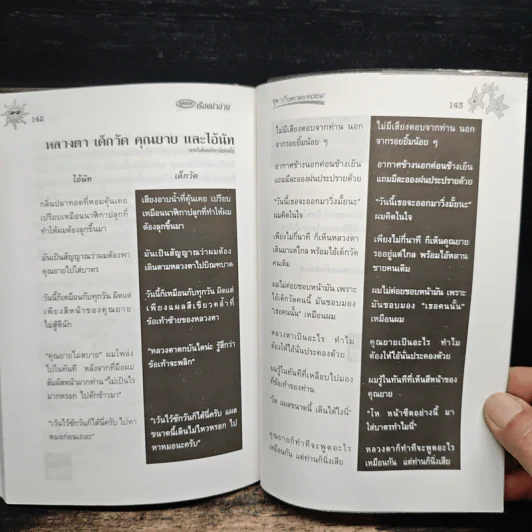 142
เรื่องน่าอ่าน
หลวงตา เด็กวัด คุณยาย และไอ้นัท
ไอ้นัท
เด็กวัด
กลิ่นปลาทอดที่หอมคุ้นเคย
เปรียบเหมือนนาฬิกาปลุกที่
ทำให้ผมต้องลุกขึ้นมา
มันเป็นสัญญาณว่าผมต้องพา
คุณยายไปใส่บาตร
วันนี้ก็เหมือนกับทุกวัน ผิดแต่
เพียงสีหน้าของคุณยาย
ไม่สู้ดีนัก
"คุณยายไม่สบาย" ผมโพล่ง
ไปในทันที หลังจากที่มือผม
สัมผัสหน้าผากท่าน "ไม่เป็นไร
มากหรอก ไปตักข้าวมา"
"เว้นไว้ซักวันก็ได้นี่ครับ ไปหา
หมอก่อนเถอะ"
เสียงอาบน้ำที่คุ้นเคย เปรียบ
เหมือนนาฬิกาปลุกที่ทำให้ผม
ต้องลุกขึ้นมา
มันเป็นสัญญาณว่าผมต้อง
เดินตามหลวงตาไปบิณฑบาต
วันนี้ก็เหมือนกับทุกวัน ผิดแต่
เพียงแผลสีเขียวคล้ำที่
ข้อเท้าซ้ายของหลวงตา
"หลวงตาตกบันไดน่ะ รู้สึกว่า
ข้อเท้าจะพลิก"
"เว้นไว้ซักวันก็ได้นี่ครับ แผล
ขนาดนี้เดินไม่ไหวหรอก ไป
หาหมอนะครับ"
143
ไม่มีเสียงตอบจากท่าน นอก
จากรอยยิ้มน้อย ๆ
อากาศข้างนอกค่อนข้างเย็น
แถมมีละอองฝนประปรายด้วย
"วันนี้เธอจะออกมาวิ่งมั้ยนะ"
ผมคิดในใจ
เพียงไม่กี่นาที ก็เห็นหลวงตา
เดินมาแต่ไกล พร้อมไอ้เด็กวัด
คนเดิม
ผมไม่ค่อยชอบหน้ามัน เพราะ
ไอ้เด็กวัดคนนี้ มันชอบมอง
"เธอคนนั้น" เหมือนผม
หลวงตาเป็นอะไร ทำไม
ต้องให้ไอ้นั่นประคองด้วย
ผมรู้ในทันทีที่เหลือบไปมอง
ที่ข้อเท้าของท่าน
"โห แผลขนาดนี้ เดินได้ไงนี่"
คุณยายก็ทำทีจะพูดอะไร
เหมือนกัน แต่ท่านก็นิ่งเสีย
ไม่มีเสียงตอบจากท่าน นอก
จากรอยยิ้มน้อย ๆ
อากาศข้างนอกค่อนข้างเย็น
แถมมีละอองฝนประปรายด้วย
"วันนี้เธอจะออกมาวิ่งมั้ยนะ"
ผมคิดในใจ
เพียงไม่กี่นาที ก็เห็นคุณยาย
รออยู่แต่ไกล พร้อมไอ้หลาน
ชายคนเดิม
ผมไม่ค่อยชอบหน้ามัน เพราะ
มันชอบมอง "เธอคนนั้น"
เหมือนผม
คุณยายเป็นอะไร ทำไม
ต้องให้ไอ้นั่นประคองด้วย
ผมรู้ในทันทีที่เห็นสีหน้าของ
คุณยาย
"โห หน้าซีดอย่างนี้ มา
ใส่บาตรทำไมนี่"
หลวงตาก็ทำทีจะพูดอะไร
เหมือนกัน แต่ท่านก็นิ่งเสีย